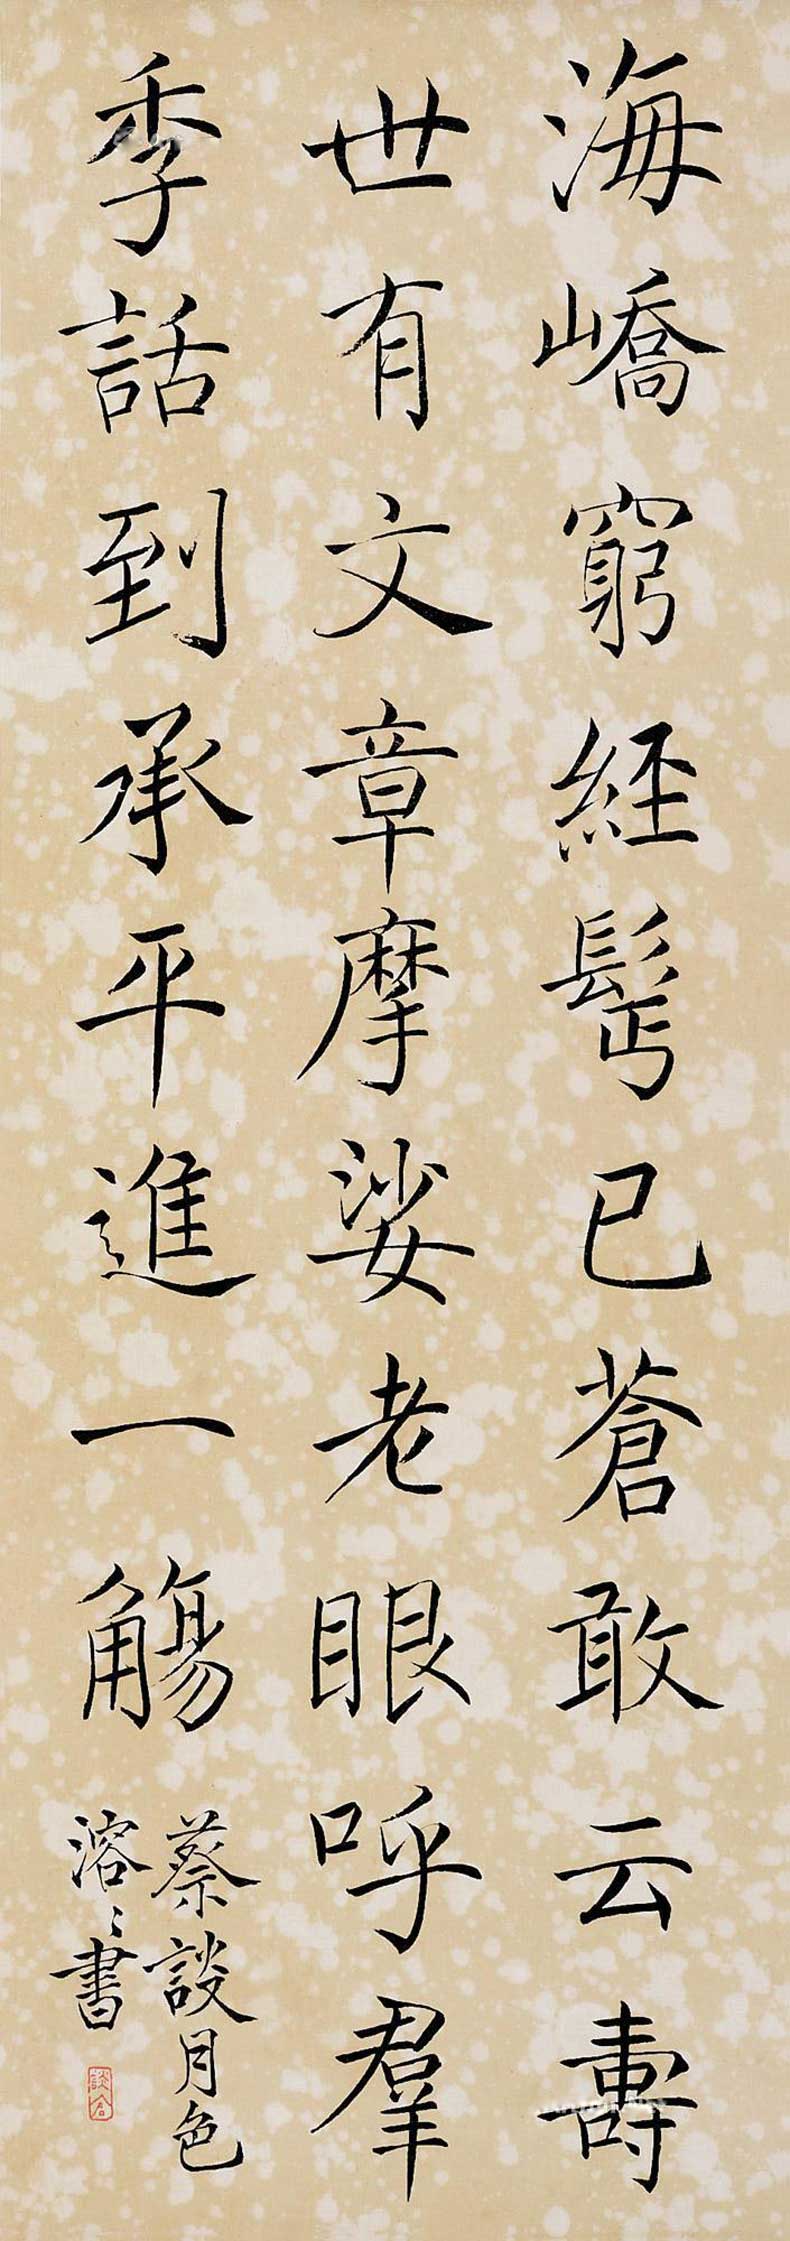 海嶠窮經髩已蒼敢云壽
世有文章摩娑老眼呼羣
季話到承平進一觴
蔡談月色
溶〻書